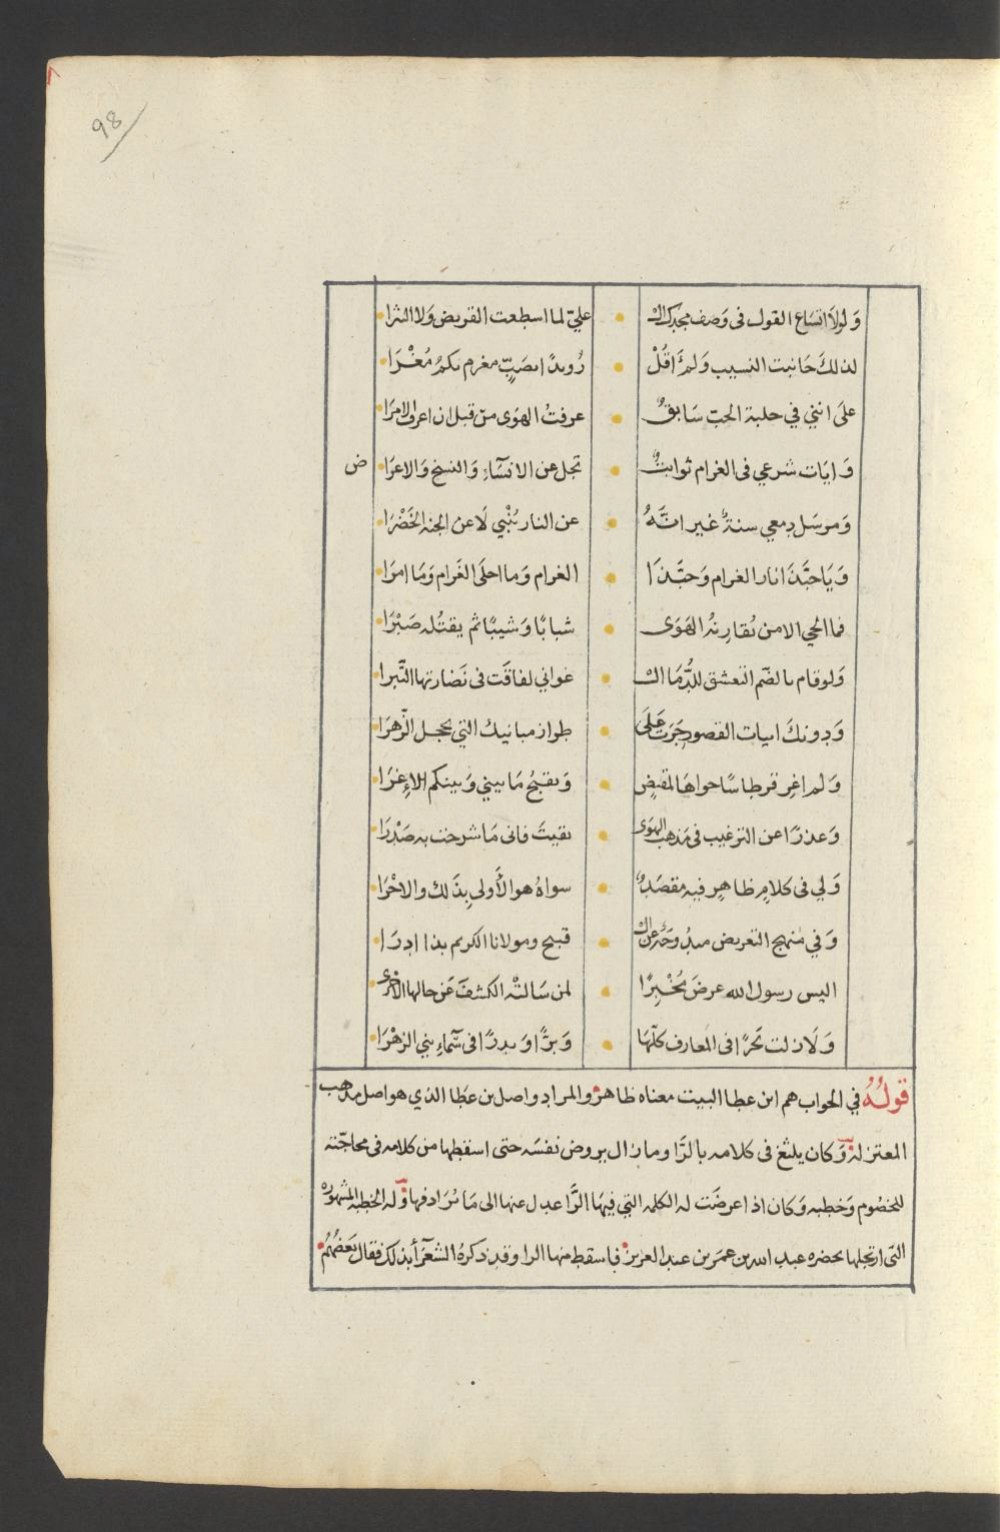 98
ولولا اتساع القول فى وصف مجدك ال • علىّ لما اسطعت القريض ولا النثرا
لذلك جانبت النسيب ولم اقل • رويدًا بصبّ مغرم بكم مغرَا
على انني في حلبة الحب سابقٌ • عرفت الهوى من قبل ان اعرف الامرا
وايات شرعي فى الغرام ثوابتٌ • تجل عن الانساء والنسخ والاعرا ض
ومرسل دمعي سنةٌ غير انه • عن النار يُنْبي لا عن الجنه الخَضْرَا
ويا حبّذا نار الغرام وحبّذا • الغرام وما احلى الغرام وما امرا
فما الحي الا من تقارنه الهوى • شبابًا وشيبًا ثم يقتله صَبْرَا
ولو قام بالضم التعشق للدُّمَا ال • غواني لفاقت فى نضارتها التبرا
ودونك ابيات القصور جَرَت على • طراز مبانيك التي تخجل الزهرا
ولم اغر قرطاسًا حواها لمقتضٍ • وتقبح ما بيني وبينكم الاغرَا
وعذرًا عن الترغيب فى مذهب الهوى • بقيتَ فانى ما شرحت به صَدْرَا
ولي فى كلامٍ ظاهرٍ فيه مقصدٌ • سواهُ هو الأَولى بذلك والاخْرَا
وفي منهج التعريض مبدٍ وحَدُّه عن ال • قبيح ومولانا الكريم بذا ادرَا
اليس رسول الله عرضَ مُخْبِرًا • لمن سَالتْه الكشفَ عَن حالها الاخرى
ولا زلت بَحرًا فى المعارف كلّها • وَبرًّا وبدرًا فى سَماءِ بني الزهْرَا
قولُهُ في الجواب هم ابن عطا البيت معناه ظاهر والمراد واصل بن عَطا الذي هو اصل مذهب
المعتزله وكان يلثغ فى كلامه بالرّا وما زال يروض نفسَه حتى اسقطها من كلامه فى محاجّته
للخصوم وخطبه وكان اذا عرضَت له الكلمه التي فيهَا الرَّا عدل عنها الى مَا تُرادفها وله الخطبه المشهوره
التى ارتجلها بحضره عبد الله بن عمر بن عبد العزيز فاسقط منها الرا وقد ذكرهُ الشعرَآ بذلك فقال بَعْضُهُم